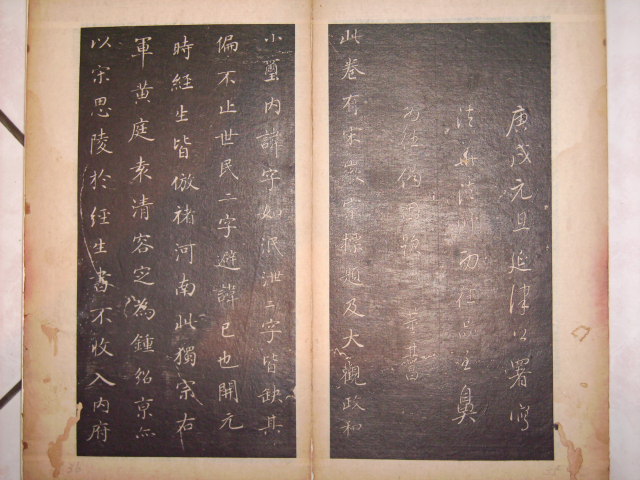 庚戌元旦延津公署寫
董其昌
此卷有宋徽宗標題及大觀政和
小璽內諱字如泯泄二字皆缺其
偏不止世民二字避諱已也開元
時經生皆倣褚河南此獨宗右
軍黃庭袁清容定為鍾紹京亦
以宋思陵於經生書不收入內府